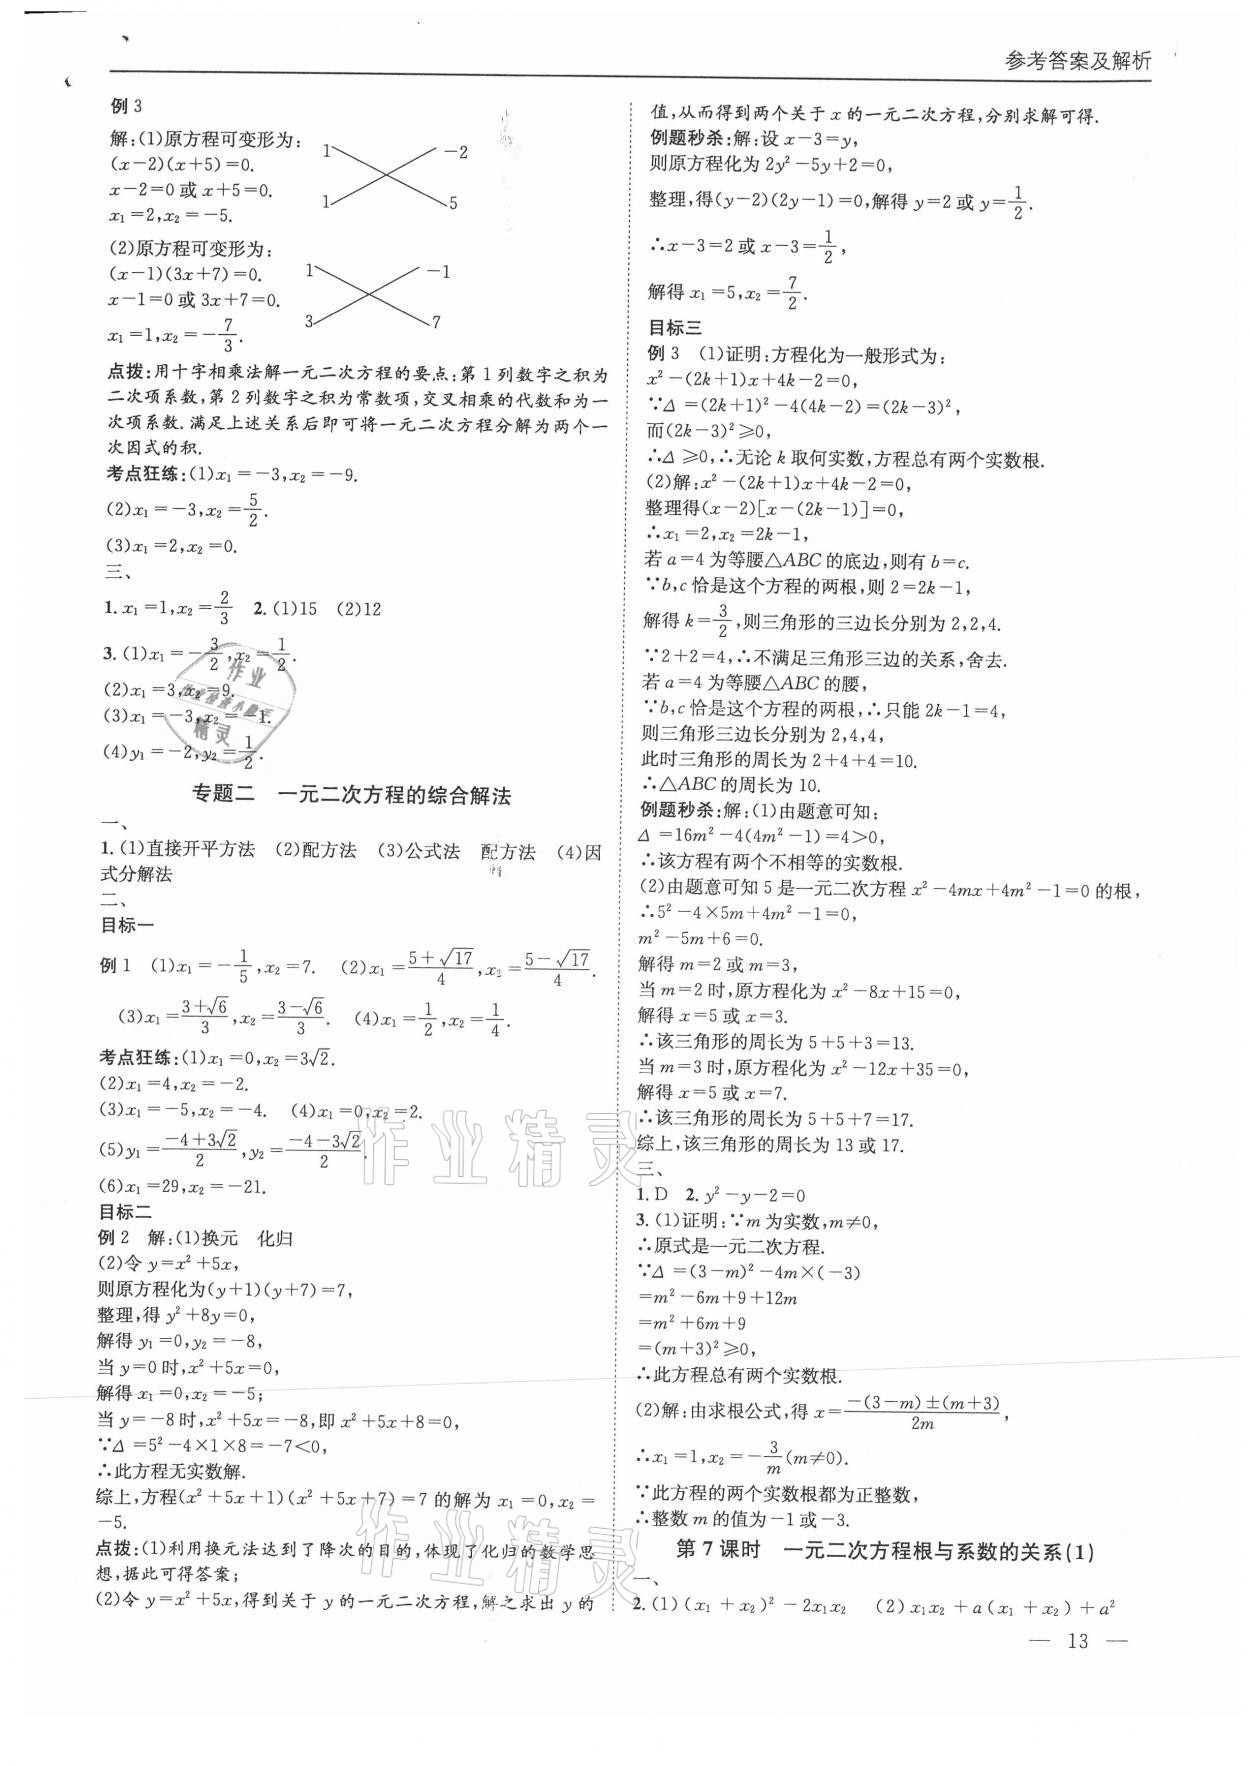 参考答案及解析
例 3
解:(1)原方程可变形为:
(x-2)(x+5)=0.
x-2=0 或 x+5=0.
x₁=2,x₂=-5.
1 -2
1 5
(2)原方程可变形为:
(x-1)(3x+7)=0.
x-1=0 或 3x+7=0.
x₁=1,x₂=-7/3.
1 -1
3 7
点拨:用十字相乘法解一元二次方程的要点:第 1 列数字之积为
二次项系数,第 2 列数字之积为常数项,交叉相乘的代数和为一
次项系数.满足上述关系后即可将一元二次方程分解为两个一
次因式的积.
考点狂练:(1)x₁=-3,x₂=-9.
(2)x₁=-3,x₂=5/2.
(3)x₁=2,x₂=0.
三、
1. x₁=1,x₂=2/3 2. (1)15 (2)12
3. (1)x₁=-3/2,x₂=1/2.
(2)x₁=3,x₂=9.
(3)x₁=-3,x₂=-1.
(4)y₁=-2,y₂=1/2.
专题二 一元二次方程的综合解法
一、
1. (1)直接开平方法 (2)配方法 (3)公式法 配方法 (4)因
式分解法
二、
目标一
例 1 (1)x₁=-1/5,x₂=7. (2)x₁=(5+√17)/4,x₂=(5-√17)/4.
(3)x₁=(3+√6)/3,x₂=(3-√6)/3. (4)x₁=1/2,x₂=1/4.
考点狂练:(1)x₁=0,x₂=3√2.
(2)x₁=4,x₂=-2.
(3)x₁=-5,x₂=-4. (4)x₁=0,x₂=2.
(5)y₁=(-4+3√2)/2,y₂=(-4-3√2)/2.
(6)x₁=29,x₂=-21.
目标二
例 2 解:(1)换元 化归
(2)令 y=x²+5x,
则原方程化为(y+1)(y+7)=7,
整理,得 y²+8y=0,
解得 y₁=0,y₂=-8,
当 y=0 时,x²+5x=0,
解得 x₁=0,x₂=-5;
当 y=-8 时,x²+5x=-8,即 x²+5x+8=0,
∵Δ=5²-4×1×8=-7<0,
∴此方程无实数解.
综上,方程(x²+5x+1)(x²+5x+7)=7 的解为 x₁=0,x₂=
-5.
点拨:(1)利用换元法达到了降次的目的,体现了化归的数学思
想,据此可得答案;
(2)令 y=x²+5x,得到关于 y 的一元二次方程,解之求出 y 的
值,从而得到两个关于 x 的一元二次方程,分别求解可得.
例题秒杀:解:设 x-3=y,
则原方程化为 2y²-5y+2=0,
整理,得(y-2)(2y-1)=0,解得 y=2 或 y=1/2.
∴x-3=2 或 x-3=1/2,
解得 x₁=5,x₂=7/2.
目标三
例 3 (1)证明:方程化为一般形式为:
x²-(2k+1)x+4k-2=0,
∵Δ=(2k+1)²-4(4k-2)=(2k-3)²,
而(2k-3)²≥0,
∴Δ≥0,∴无论 k 取何实数,方程总有两个实数根.
(2)解:x²-(2k+1)x+4k-2=0,
整理得(x-2)[x-(2k-1)]=0,
∴x₁=2,x₂=2k-1,
若 a=4 为等腰△ABC 的底边,则有 b=c.
∵b,c 恰是这个方程的两根,则 2=2k-1,
解得 k=3/2,则三角形的三边长分别为 2,2,4.
∵2+2=4,∴不满足三角形三边的关系,舍去.
若 a=4 为等腰△ABC 的腰,
∵b,c 恰是这个方程的两根,∴只能 2k-1=4,
则三角形三边长分别为 2,4,4,
此时三角形的周长为 2+4+4=10.
∴△ABC 的周长为 10.
例题秒杀:解:(1)由题意可知:
Δ=16m²-4(4m²-1)=4>0,
∴该方程有两个不相等的实数根.
(2)由题意可知 5 是一元二次方程 x²-4mx+4m²-1=0 的根,
∴5²-4×5m+4m²-1=0,
m²-5m+6=0.
解得 m=2 或 m=3,
当 m=2 时,原方程化为 x²-8x+15=0,
解得 x=5 或 x=3.
∴该三角形的周长为 5+5+3=13.
当 m=3 时,原方程化为 x²-12x+35=0,
解得 x=5 或 x=7.
∴该三角形的周长为 5+5+7=17.
综上,该三角形的周长为 13 或 17.
三、
1. D 2. y²-y-2=0
3. (1)证明:∵m 为实数,m≠0,
∴原式是一元二次方程.
∵Δ=(3-m)²-4m×(-3)
=m²-6m+9+12m
=m²+6m+9
=(m+3)²≥0,
∴此方程总有两个实数根.
(2)解:由求根公式,得 x=(-(3-m)±(m+3))/2m,
∴x₁=1,x₂=-3/m(m≠0).
∵此方程的两个实数根都为正整数,
∴整数 m 的值为-1 或-3.
第 7 课时 一元二次方程根与系数的关系(1)
一、
2. (1)(x₁+x₂)²-2x₁x₂ (2)x₁x₂+a(x₁+x₂)+a²
— 13 —
作业精灵
作业精灵
作业
精灵